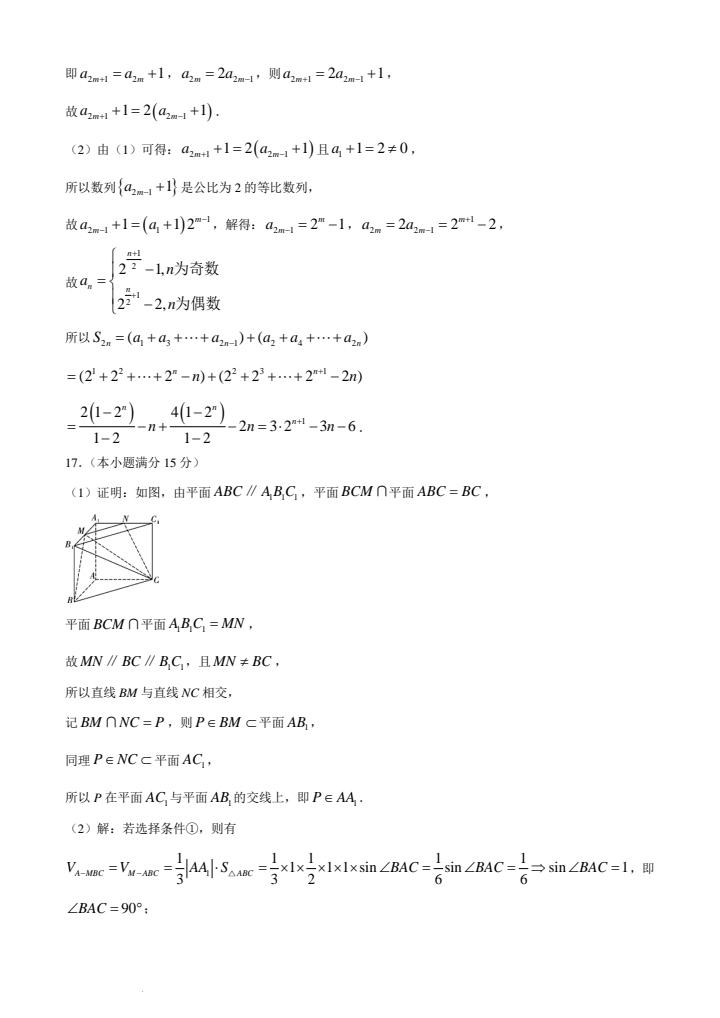 即 a₂ₘ₊₁ = a₂ₘ +1，a₂ₘ = 2a₂ₘ₋₁，则 a₂ₘ₊₁ = 2a₂ₘ₋₁ +1，
故 a₂ₘ₊₁ +1 = 2(a₂ₘ₋₁ +1)．
（2）由（1）可得：a₂ₘ₊₁ +1 = 2(a₂ₘ₋₁ +1) 且 a₁ +1 = 2 ≠ 0，
所以数列{a₂ₘ₋₁ +1} 是公比为 2 的等比数列，
故 a₂ₘ₋₁ +1 = (a₁ +1)2^{m−1}，解得：a₂ₘ₋₁ = 2^m −1，a₂ₘ = 2a₂ₘ₋₁ = 2^{m+1} − 2，
故 aₙ = { 2^{(n+1)/2} −1, n为奇数
2^{n/2+1} − 2, n为偶数
所以 S₂ₙ = (a₁ + a₃ + ⋯ + a₂ₙ₋₁) + (a₂ + a₄ + ⋯ + a₂ₙ)
= (2¹ + 2² + ⋯ + 2ⁿ − n) + (2² + 2³ + ⋯ + 2^{n+1} − 2n)
= 2(1−2ⁿ)/(1−2) − n + 4(1−2ⁿ)/(1−2) − 2n = 3·2^{n+1} − 3n − 6．
17.（本小题满分 15 分）
（1）证明：如图，由平面 ABC ∥ A₁B₁C₁，平面 BCM ∩ 平面 ABC = BC，
A₁ N C₁
M
B₁
A C
B
平面 BCM ∩ 平面 A₁B₁C₁ = MN，
故 MN ∥ BC ∥ B₁C₁，且 MN ≠ BC，
所以直线 BM 与直线 NC 相交，
记 BM ∩ NC = P，则 P ∈ BM ⊂ 平面 AB₁，
同理 P ∈ NC ⊂ 平面 AC₁，
所以 P 在平面 AC₁ 与平面 AB₁ 的交线上，即 P ∈ AA₁．
（2）解：若选择条件①，则有
V_{A−MBC} = V_{M−ABC} = 1/3 |AA₁|·S_{△ABC} = 1/3 ×1× 1/2 ×1×1×sin∠BAC = 1/6 sin∠BAC = 1/6 ⇒ sin∠BAC = 1，即
∠BAC = 90°；